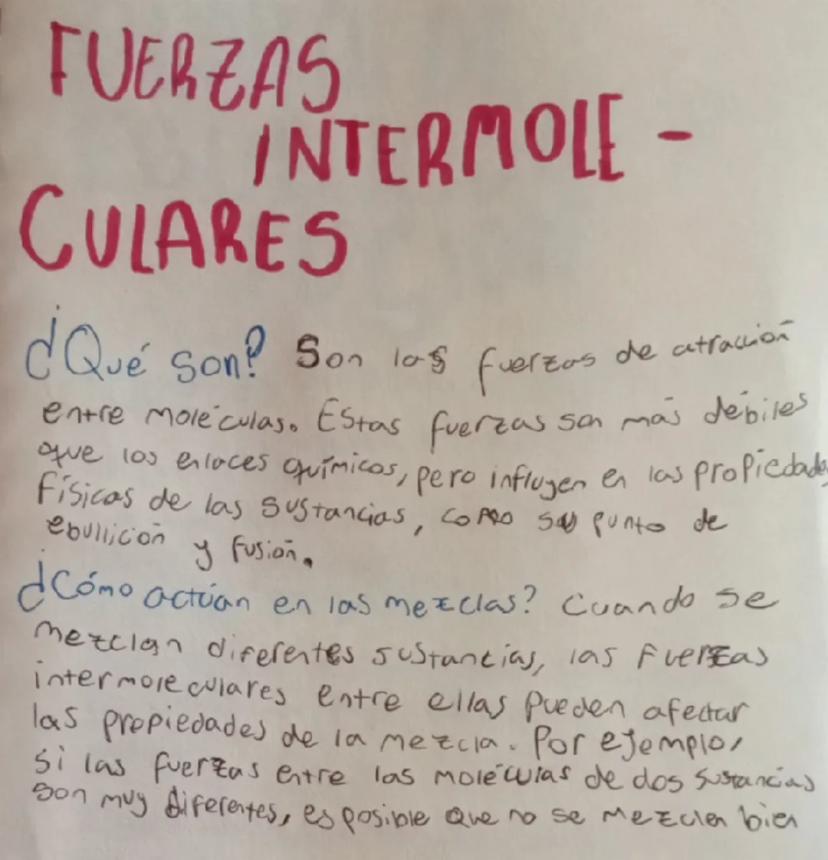 FUERZAS
INTERMOLE-
CULARES
¿Qué son? Son las fuerzas de atracción
entre moléculas. Estas fuerzas son más débiles
que los enlaces químicos, pero influyen en las propiedades
físicas de las sustancias, como su punto de
ebullición y fusión.
¿Cómo actúan en las mezclas? Cuando se
mezclan diferentes sustancias, las fuerzas
intermoleculares entre ellas pueden afectar
las propiedades de la mezcla. Por ejemplo,
si las fuerzas entre las moléculas de dos sustancias
son muy diferentes, es posible que no se mezclen bien